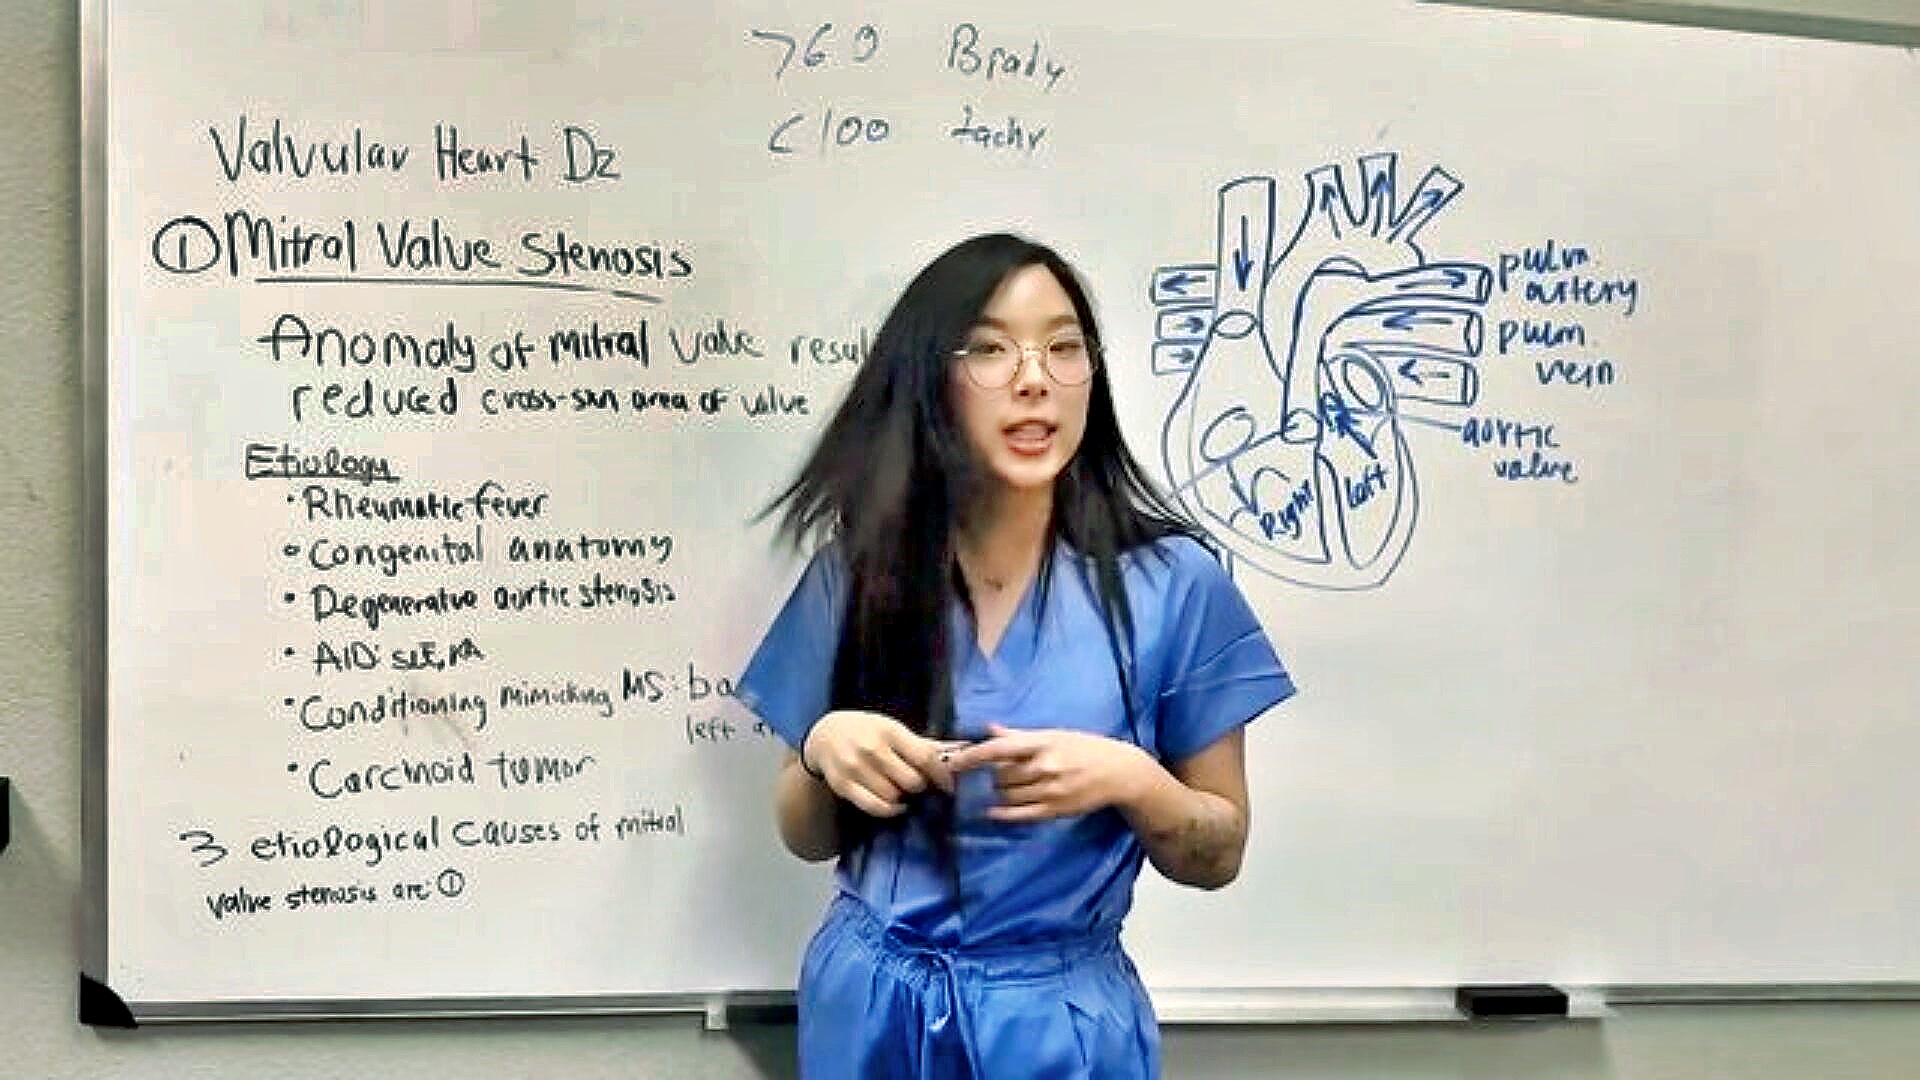 >60 Brady
<100 tachy
Valvular Heart Dz
① Mitral Valve Stenosis
Anomaly of mitral valve resul
reduced cross-sxn area of valve
Etiology
• Rheumatic fever
• Congenital anatomy
• Degenerative aortic stenosis
• AID: SLE, RA
• Conditioning mimicking MS: ba
left a
• Carcinoid tumor
3 etiological causes of mitral
valve stenosis are: ①
pulm.
artery
pulm.
vein
aortic
valve
Right
Left